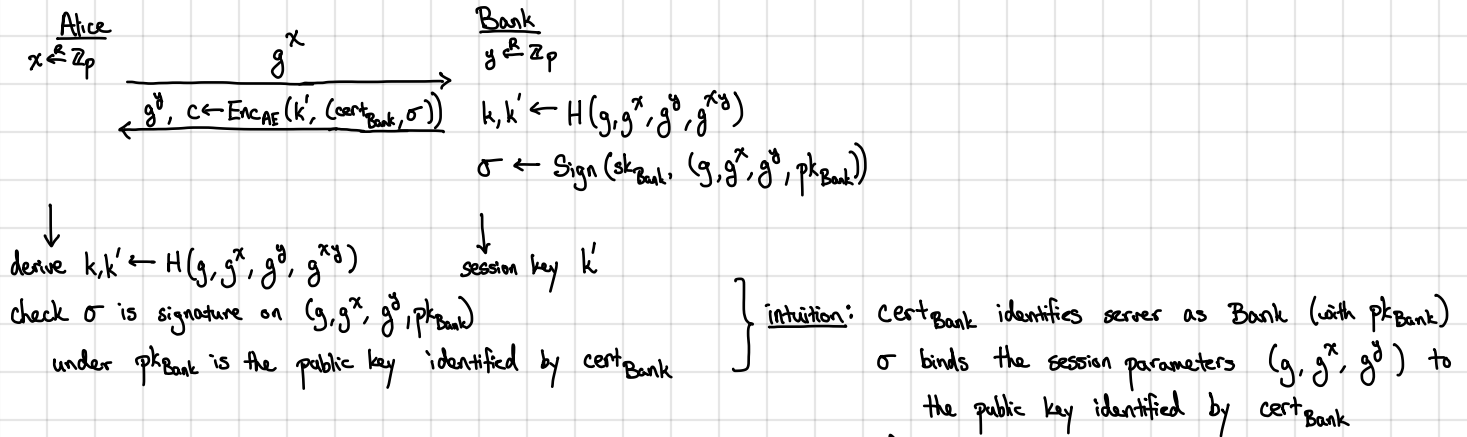 Alice
x ←ᴿ ℤp
g^x
Bank
y ←ᴿ ℤp
g^y, c ← Enc_AE(k', (cert_Bank, σ))
k, k' ← H(g, g^x, g^y, g^xy)
σ ← Sign(sk_Bank, (g, g^x, g^y, pk_Bank))
derive k, k' ← H(g, g^x, g^y, g^xy)
session key k'
check σ is signature on (g, g^x, g^y, pk_Bank)
under pk_Bank is the public key identified by cert_Bank
intuition: cert_Bank identifies server as Bank (with pk_Bank)
σ binds the session parameters (g, g^x, g^y) to
the public key identified by cert_Bank